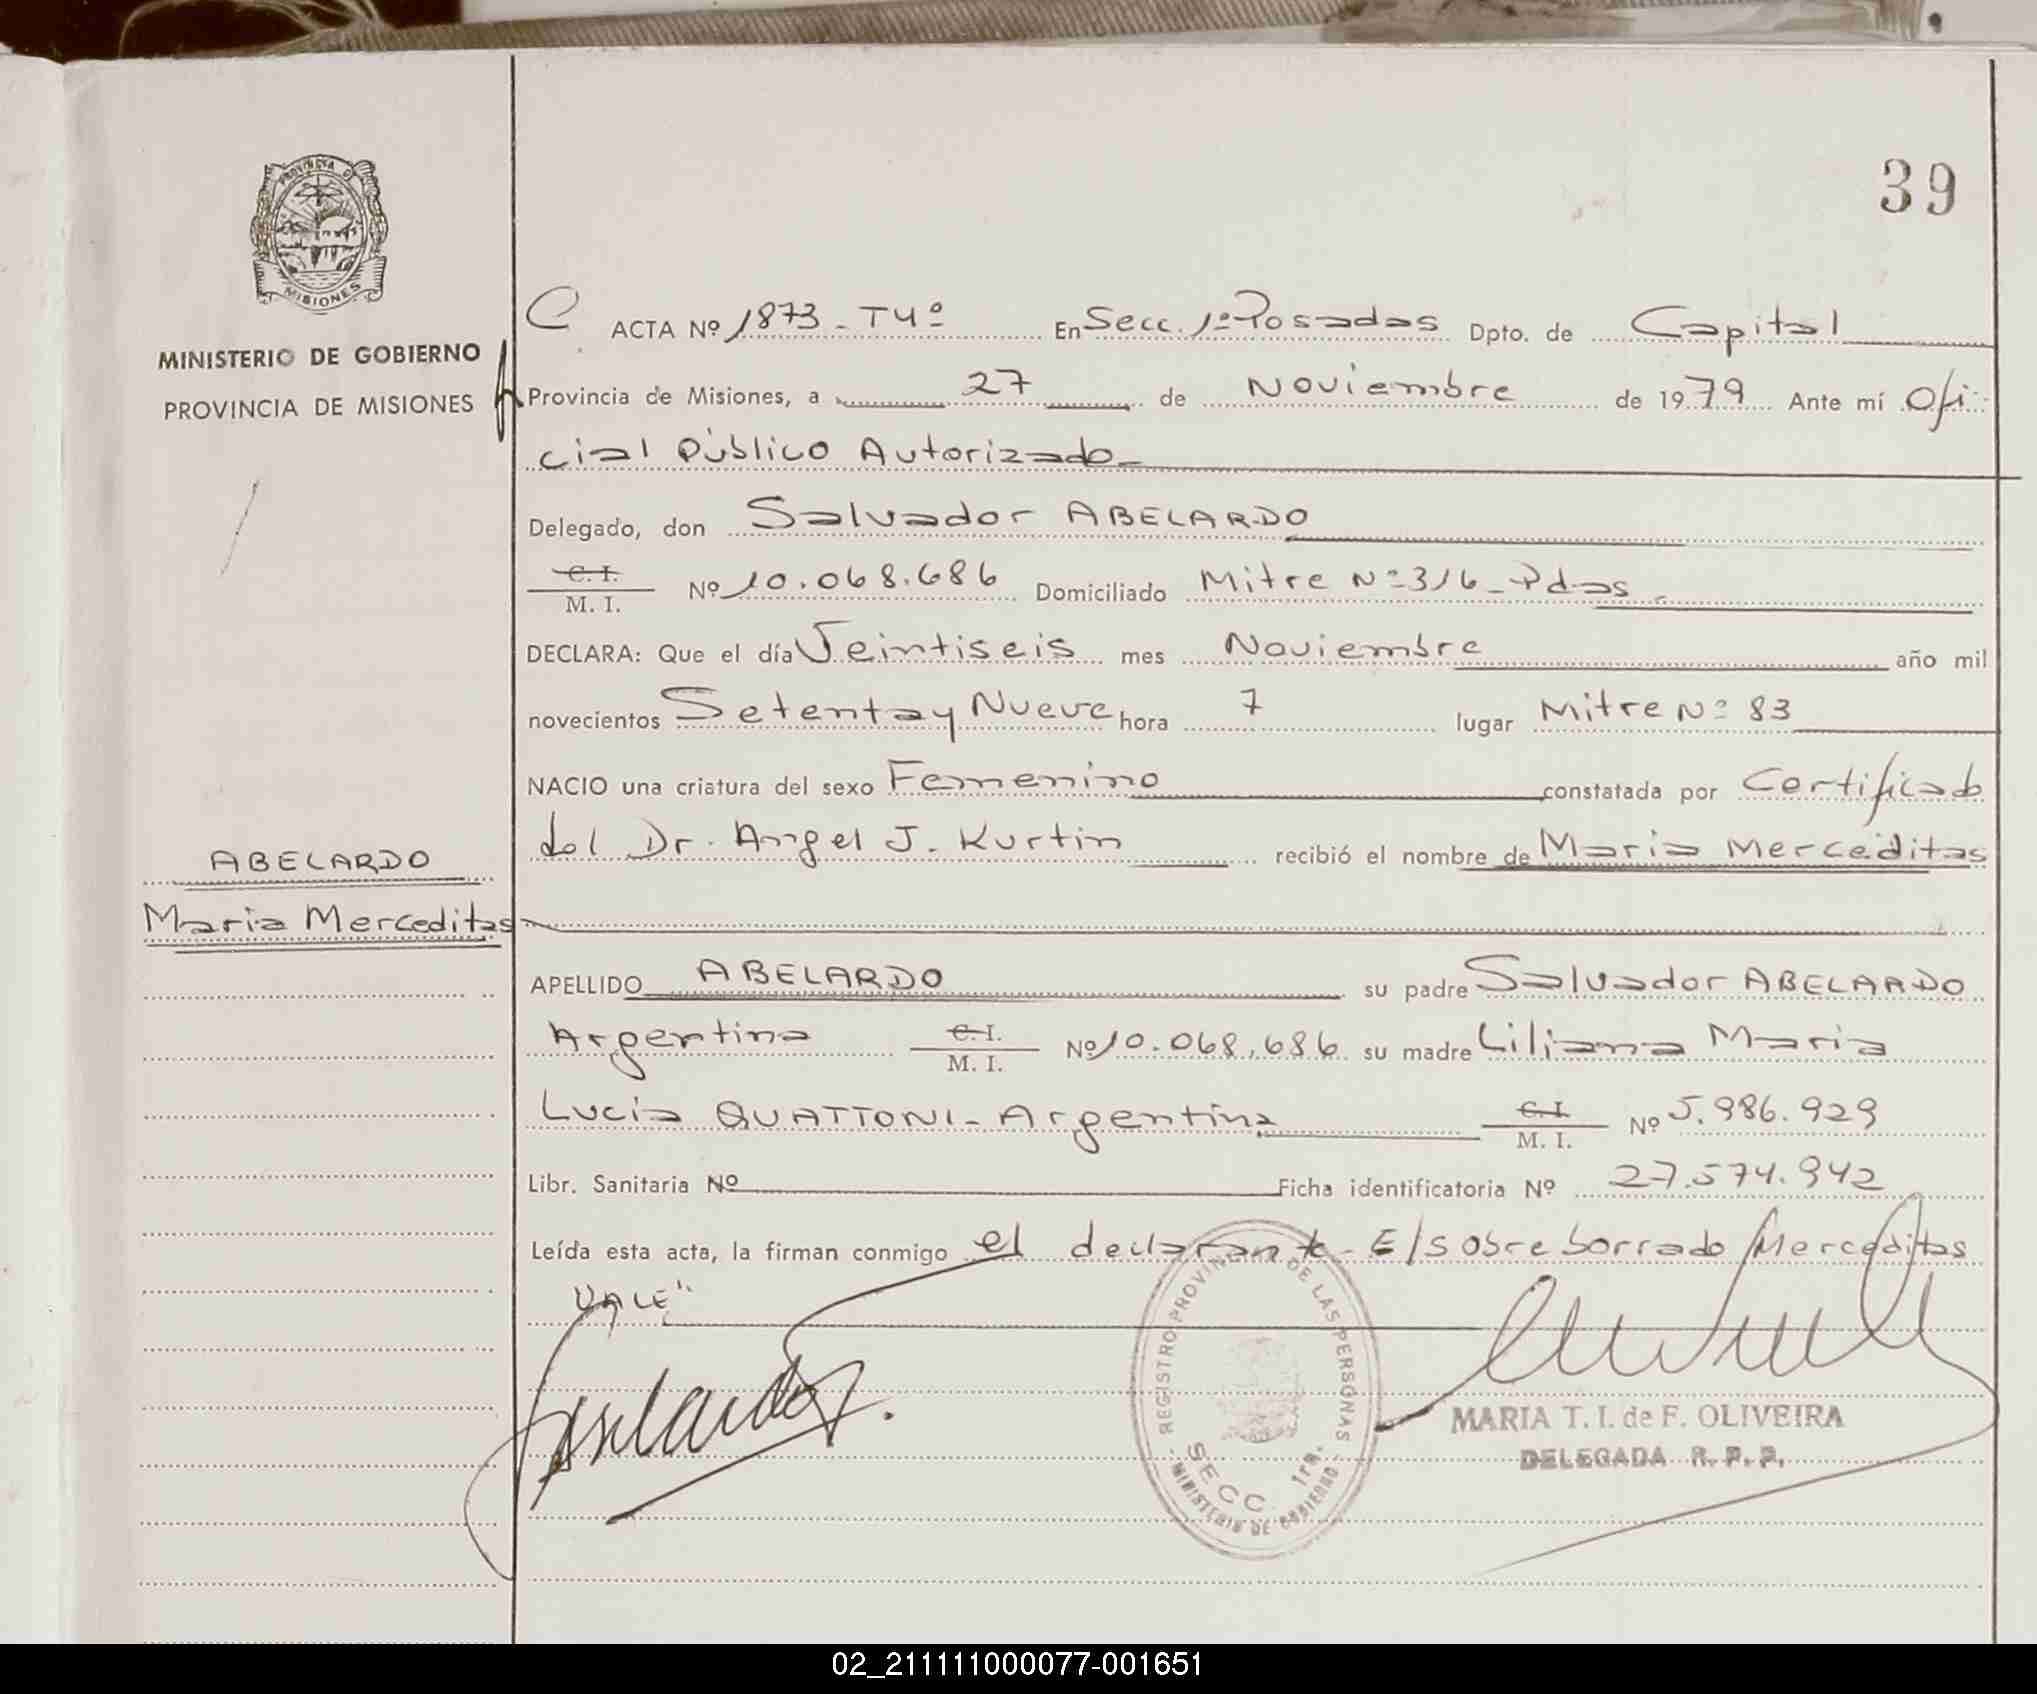 39
PROVINCIA D
MISIONES
MINISTERIO DE GOBIERNO
PROVINCIA DE MISIONES
C ACTA Nº 1873 - T4º En Secc. 1º Posadas Dpto. de Capital
Provincia de Misiones, a 27 de Noviembre de 1979 Ante mí Ofi-
cial Público Autorizado -
Delegado, don Salvador ABELARDO
C. I.
M. I. Nº 10.068.686 Domiciliado Mitre Nº 316 - Pdas.
DECLARA: Que el día Veintiseis mes Noviembre año mil
novecientos Setenta y Nueve hora 7 lugar Mitre Nº 83
NACIO una criatura del sexo Femenino constatada por Certificado
del Dr. Angel J. Kurtin recibió el nombre de Maria Merceditas
ABELARDO
Maria Merceditas
APELLIDO ABELARDO su padre Salvador ABELARDO
Argentino C. I.
M. I. Nº 10.068.686 su madre Liliana Maria
Lucia QUATTONI - Argentina C. I.
M. I. Nº 5.986.929
Libr. Sanitaria Nº Ficha identificatoria Nº 27.574.942
Leída esta acta, la firman conmigo el declarante - E/sobre borrado Merceditas
VALE"
REGISTRO PROVINCIAL DE LAS PERSONAS
SECC. 1ra.
MINISTERIO DE GOBIERNO
MARIA T. I. de F. OLIVEIRA
DELEGADA R. P. P.
02_211111000077-001651